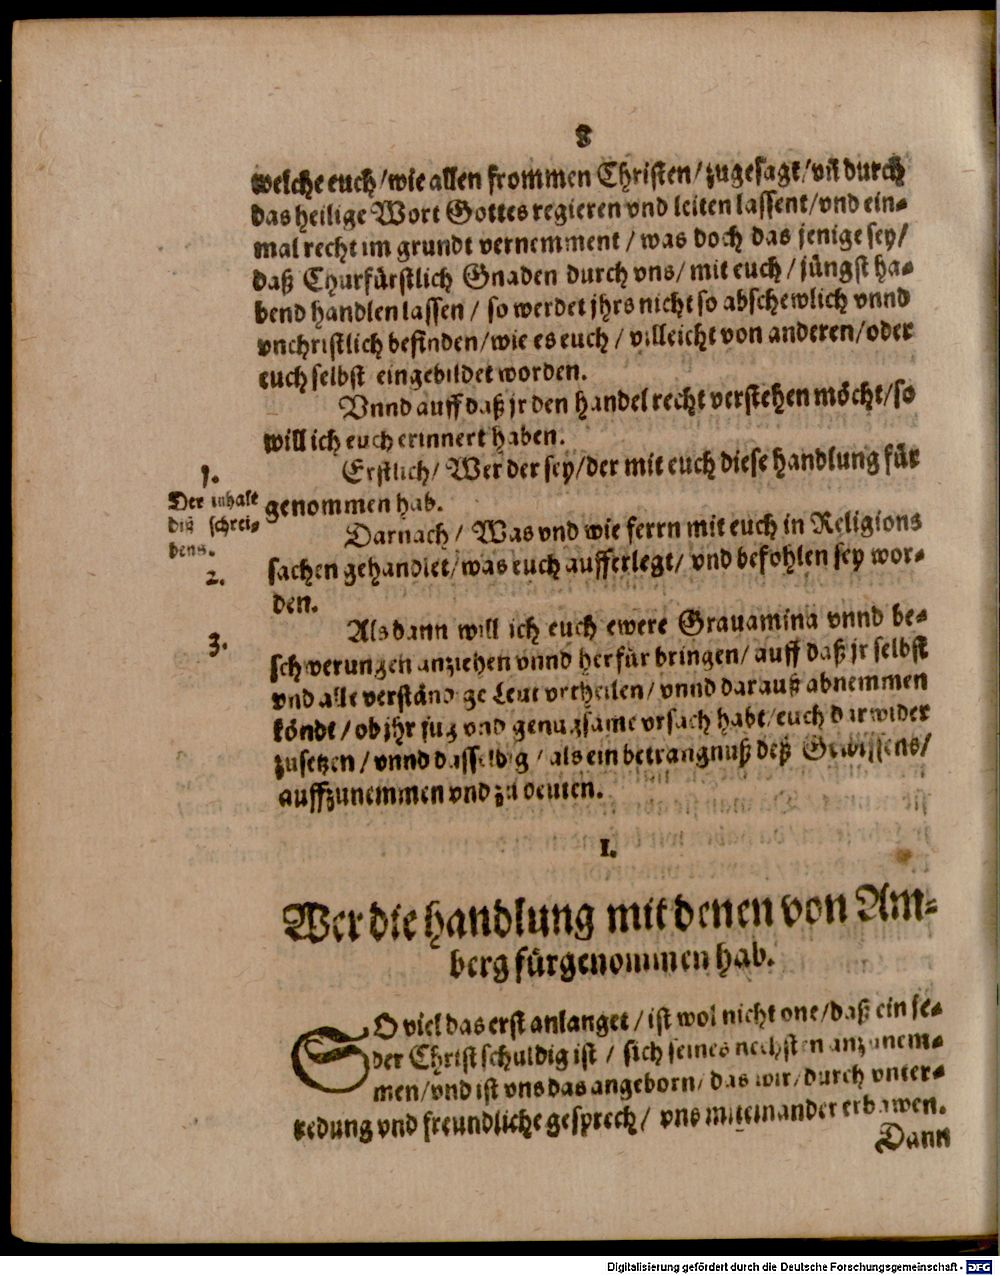 8
welche euch/wie allen frommen Christen/zugesagt/vñ durch
das heilige Wort Gottes regieren vnd leiten lassent/vnd ein-
mal recht im grundt vernemment/was doch das jenige sey/
daß Churfürstlich Gnaden durch vns/mit euch/jüngst ha-
bend handlen lassen/so werdet jhrs nicht so abschewlich vnnd
vnchristlich befinden/wie es euch/villeicht von anderen/oder
euch selbst eingebildet worden.
Vnnd auff daß jr den handel recht verstehen möcht/so
will ich euch erinnert haben.
1.
Erstlich/Wer der sey/der mit euch diese handlung für
Der inhalt
genommen hab.
diß schrei-
bens.
Darnach/Was vnd wie ferrn mit euch in Religions
2.
sachen gehandlet/was euch aufferlegt/vnd befohlen sey wor-
den.
3.
Als dann will ich euch ewere Grauamina vnnd be-
schwerungen anziehen vnnd herfür bringen/auff daß jr selbst
vnd alle verständige Leut vrtheilen/vnnd darauß abnemmen
köndt/ob jhr fug vnd genugsame vrsach habt/euch darwider
zusetzen/vnnd dasselbig/als ein betrangnuß deß Gewissens/
auffzunemmen vnd zu deuten.
I.
Wer die handlung mit denen von Am-
berg fürgenommen hab.
SO viel das erst anlanget/ist wol nicht one/daß ein je-
der Christ schuldig ist/sich seines nechsten anzunem-
men/vnd ist vns das angeborn/das wir/durch vnter-
redung vnd freundliche gesprech/vns miteinander erbawen.
Dann
Digitalisierung gefördert durch die Deutsche Forschungsgemeinschaft - DFG